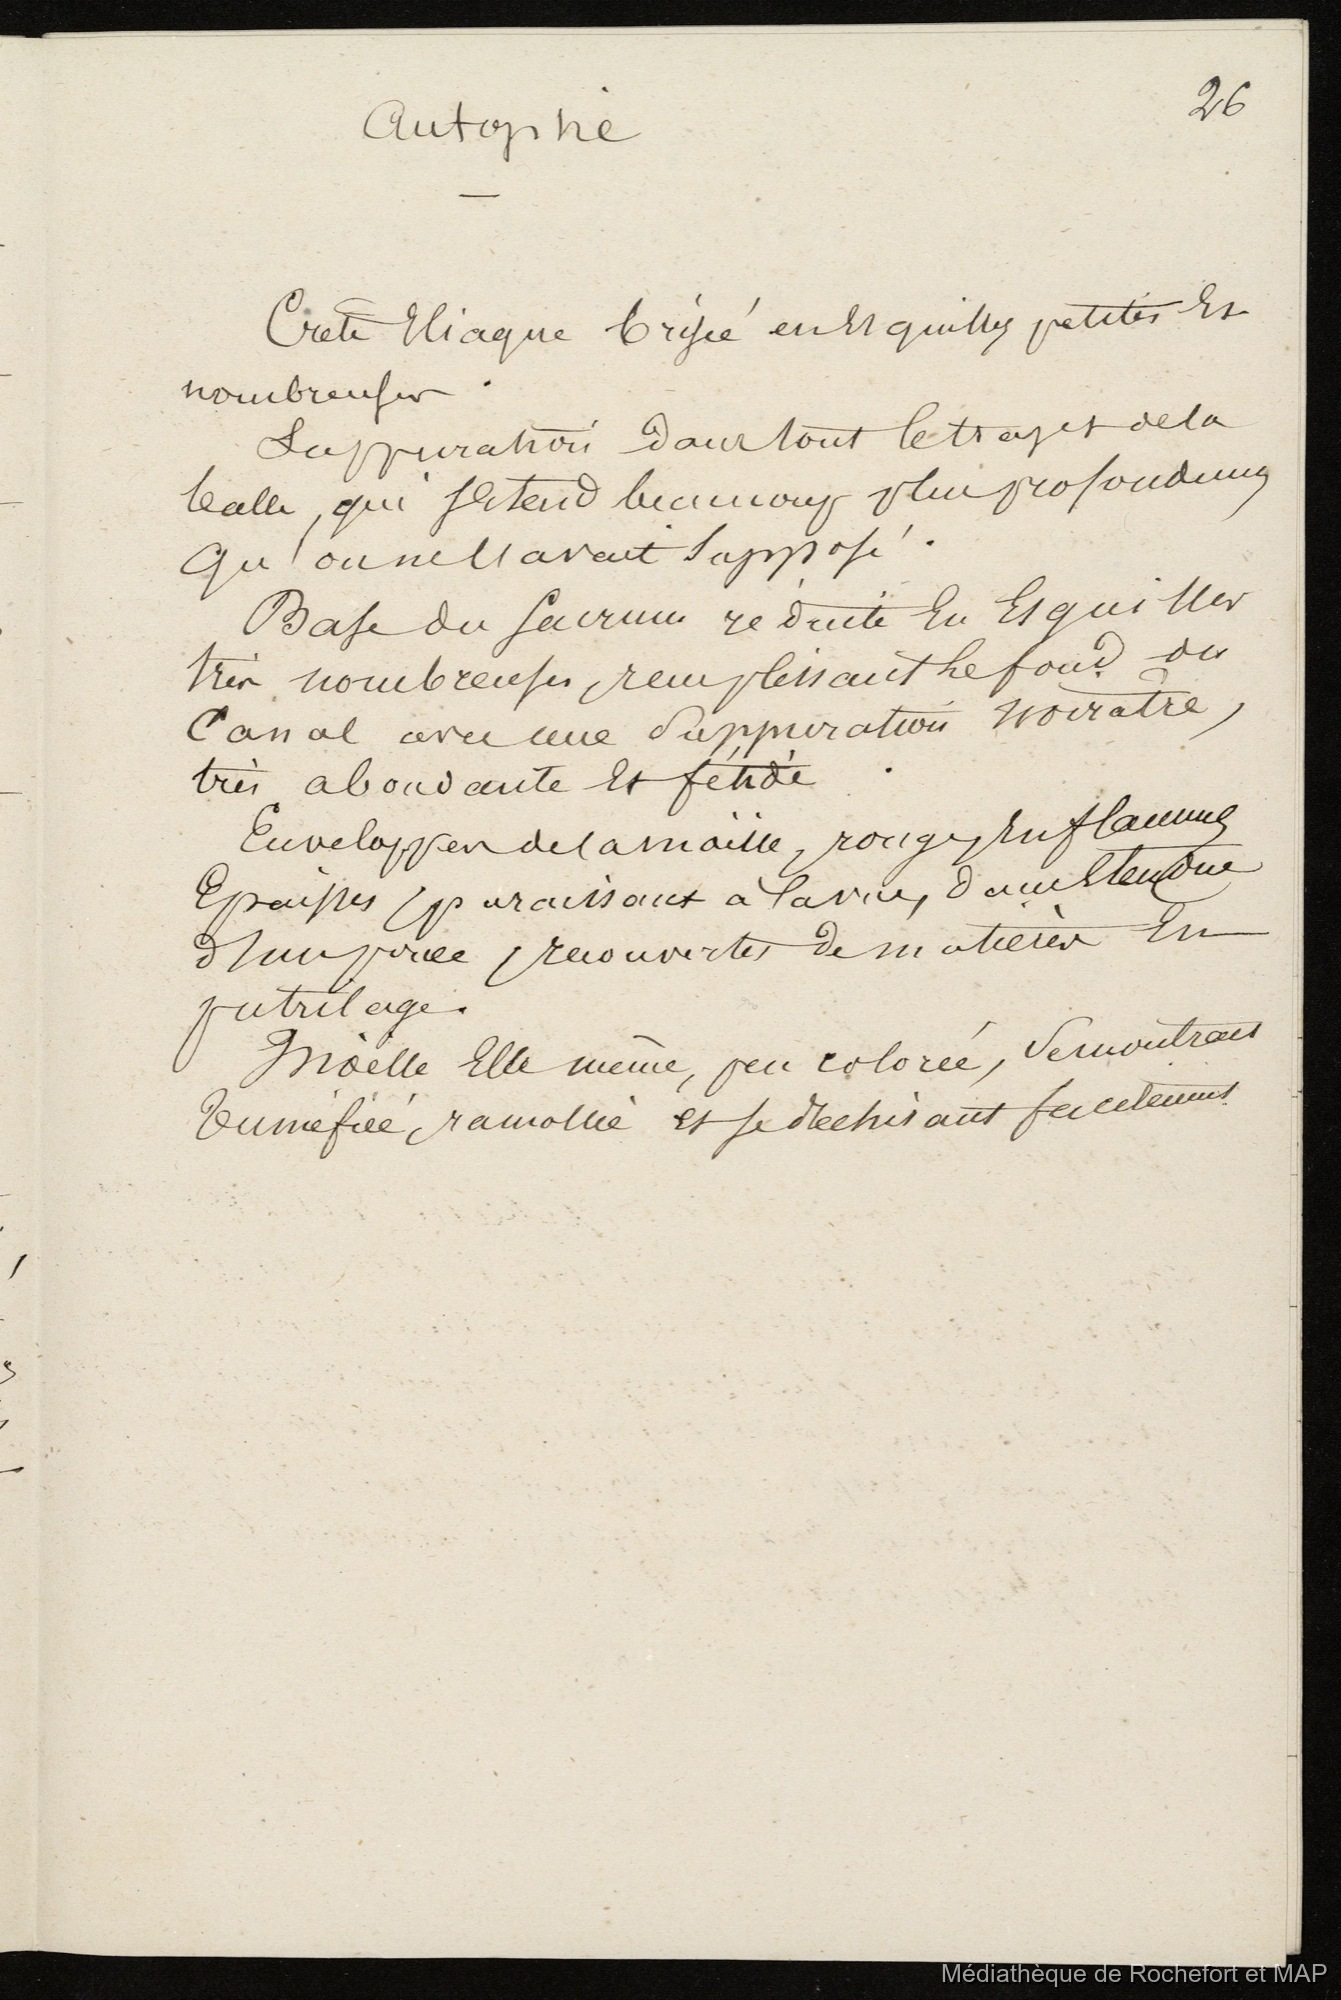 26
Autopsie
—
Crête Iliaque brisée en Esquilles petites Et
nombreuses.
Suppuration dans tout le trajet de la
balle, qui s'Etend beaucoup plus profondement
qu'on ne l'avait supposé.
Base du Sacrum réduite En Esquilles
très nombreuses, remplissant le fond du
Canal avec une suppuration noirâtre,
très abondante Et fétide.
Enveloppes de la moëlle, rouges, Enflammées
Epaisses, paraissant à la vue, dans l'Etendue
d'un pouce, recouvertes de matières En
putrilage.
Moëlle Elle même, peu colorée, se montrait
Tuméfiée, ramollie et se dechirant facilement
Médiathèque de Rochefort et MAP